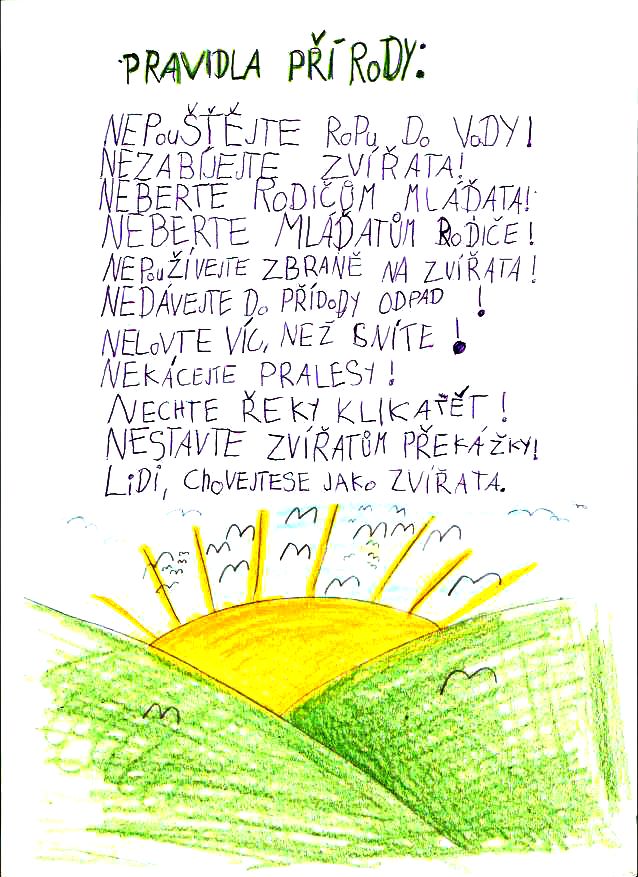 PRAVIDLA PŘÍRODY:
NEPOUŠTĚJTE ROPU DO VODY!
NEZABÍJEJTE ZVÍŘATA!
NEBERTE RODIČŮM MLÁĎATA!
NEBERTE MLÁĎATŮM RODIČE!
NEPOUŽÍVEJTE ZBRANĚ NA ZVÍŘATA!
NEDÁVEJTE DO PŘÍDODY ODPAD !
NELOVTE VÍC, NEŽ SNÍTE !
NEKÁCEJTE PRALESY!
NECHTE ŘEKY KLIKATĚT!
NESTAVTE ZVÍŘATŮM PŘEKÁŽKY!
LIDI, CHOVEJTESE JAKO ZVÍŘATA.